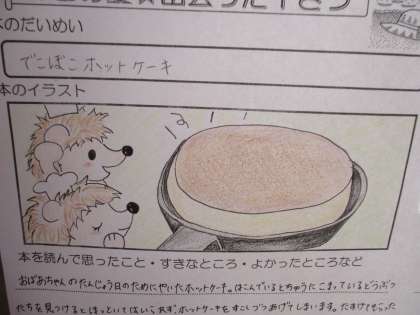 本のだいめい
でこぼこホットケーキ
本のイラスト
本を読んで思ったこと・すきなところ・よかったところなど
おばあちゃんのたんじょう日のためにやいたホットケーキ。はこんでいるとちゅうに こまっているどうぶつ
たちを見つけるとほっといてはいられず、ホットケーキをすこしづつあげてしまいます。たすけてもらった